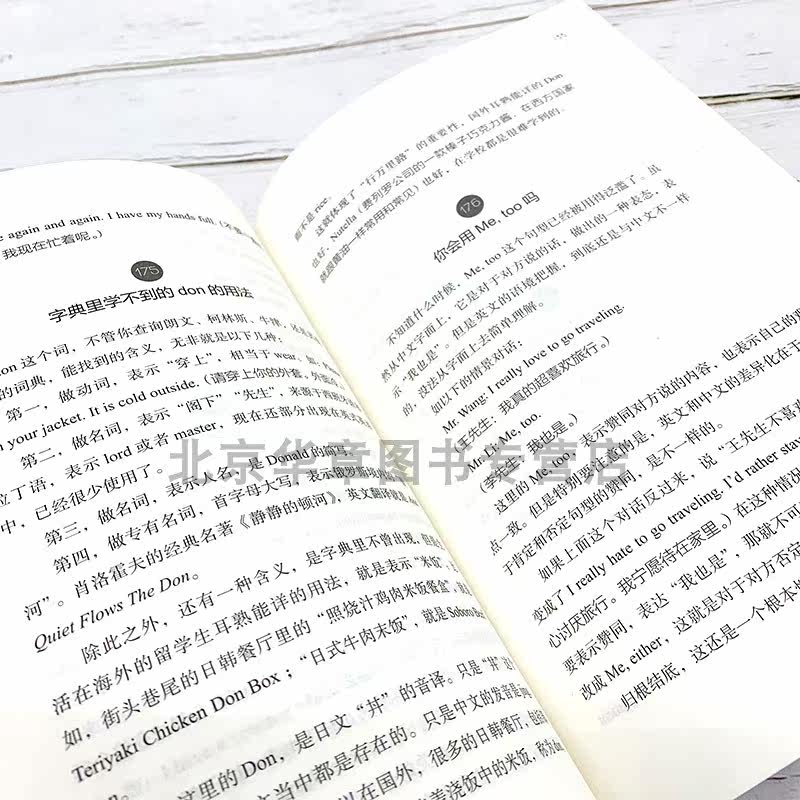 e again and again. I have my hands full.
我现在忙着呢。）
175
字典里学不到的 don 的用法
on 这个词，不管你查询朗文、柯林斯、牛津，还是
的词典，能找到的含义，无非就是以下几种，
第一，做动词，表示“穿上”，相当于 wear，如，
n your jacket. It is cold outside.（请穿上你的外套，外面
第二，做名词，表示“阁下”“先生”，来源于西班牙
拉丁语，表示 lord或者 master，现在还部分出现在英
中，已经很少使用了。
第三，做名词，表示人名，是 Donald 的简写。
第四，做专有名词，首字母大写，表示俄罗斯
河”。肖洛霍夫的经典名著《静静的顿河》，英文翻译
Quiet Flows The Don。
除此之外，还有一种含义，是字典里不曾出现，但
活在海外的留学生耳熟能详的用法，就是表示“米饭”，
如，街头巷尾的日韩餐厅里的“照烧汁鸡肉米饭餐盒”，
Teriyaki Chicken Don Box；“日式牛肉末饭”，就是 Soboro
这里的 Don，是日文“丼”的音译。只是“丼”
文当中都是存在的。只是中文的发音是
以在国外，很多的日韩餐厅，
盖浇饭中的米饭，称为
而不是 rice。
这就体现了“行万里路”的重要性，国外耳熟能详的 Don
也好，Nutella（费列罗公司的一款榛子巧克力酱，在西方国家
就跟黄油一样常用和常见）也好，在学校都是很难学到的。
176
你会用 Me, too 吗
不知道什么时候，Me, too 这个句型已经被用得泛滥了。虽
然从中文字面上，它是对于对方说的话，做出的一种表态，表
示“我也是”。但是英文的语境把握，到底还是与中文不一样
的，没法从字面上去简单理解。
如以下的情景对话：
Mr. Wang: I really love to go traveling.
（王先生：我真的超喜欢旅行。）
Mr. Li: Me, too.
（李先生：我也是。）
这里的 Me, too，表示赞同对方说的内容，也表示自己的
点一致。但是特别要注意的是，英文和中文的差异化在于
于肯定和否定句型的赞同，是不一样的。
如果上面这个对话反过来，说“王先生不喜
变成了 I really hate to go traveling. I'd rather stay
心讨厌旅行。我宁愿待在家里。）在这种情况
要表示赞同，表达“我也是”，那就不可
改成 Me, either，这就是对于对方否定
归根结底，这还是一个根本
北京华章图书专营店